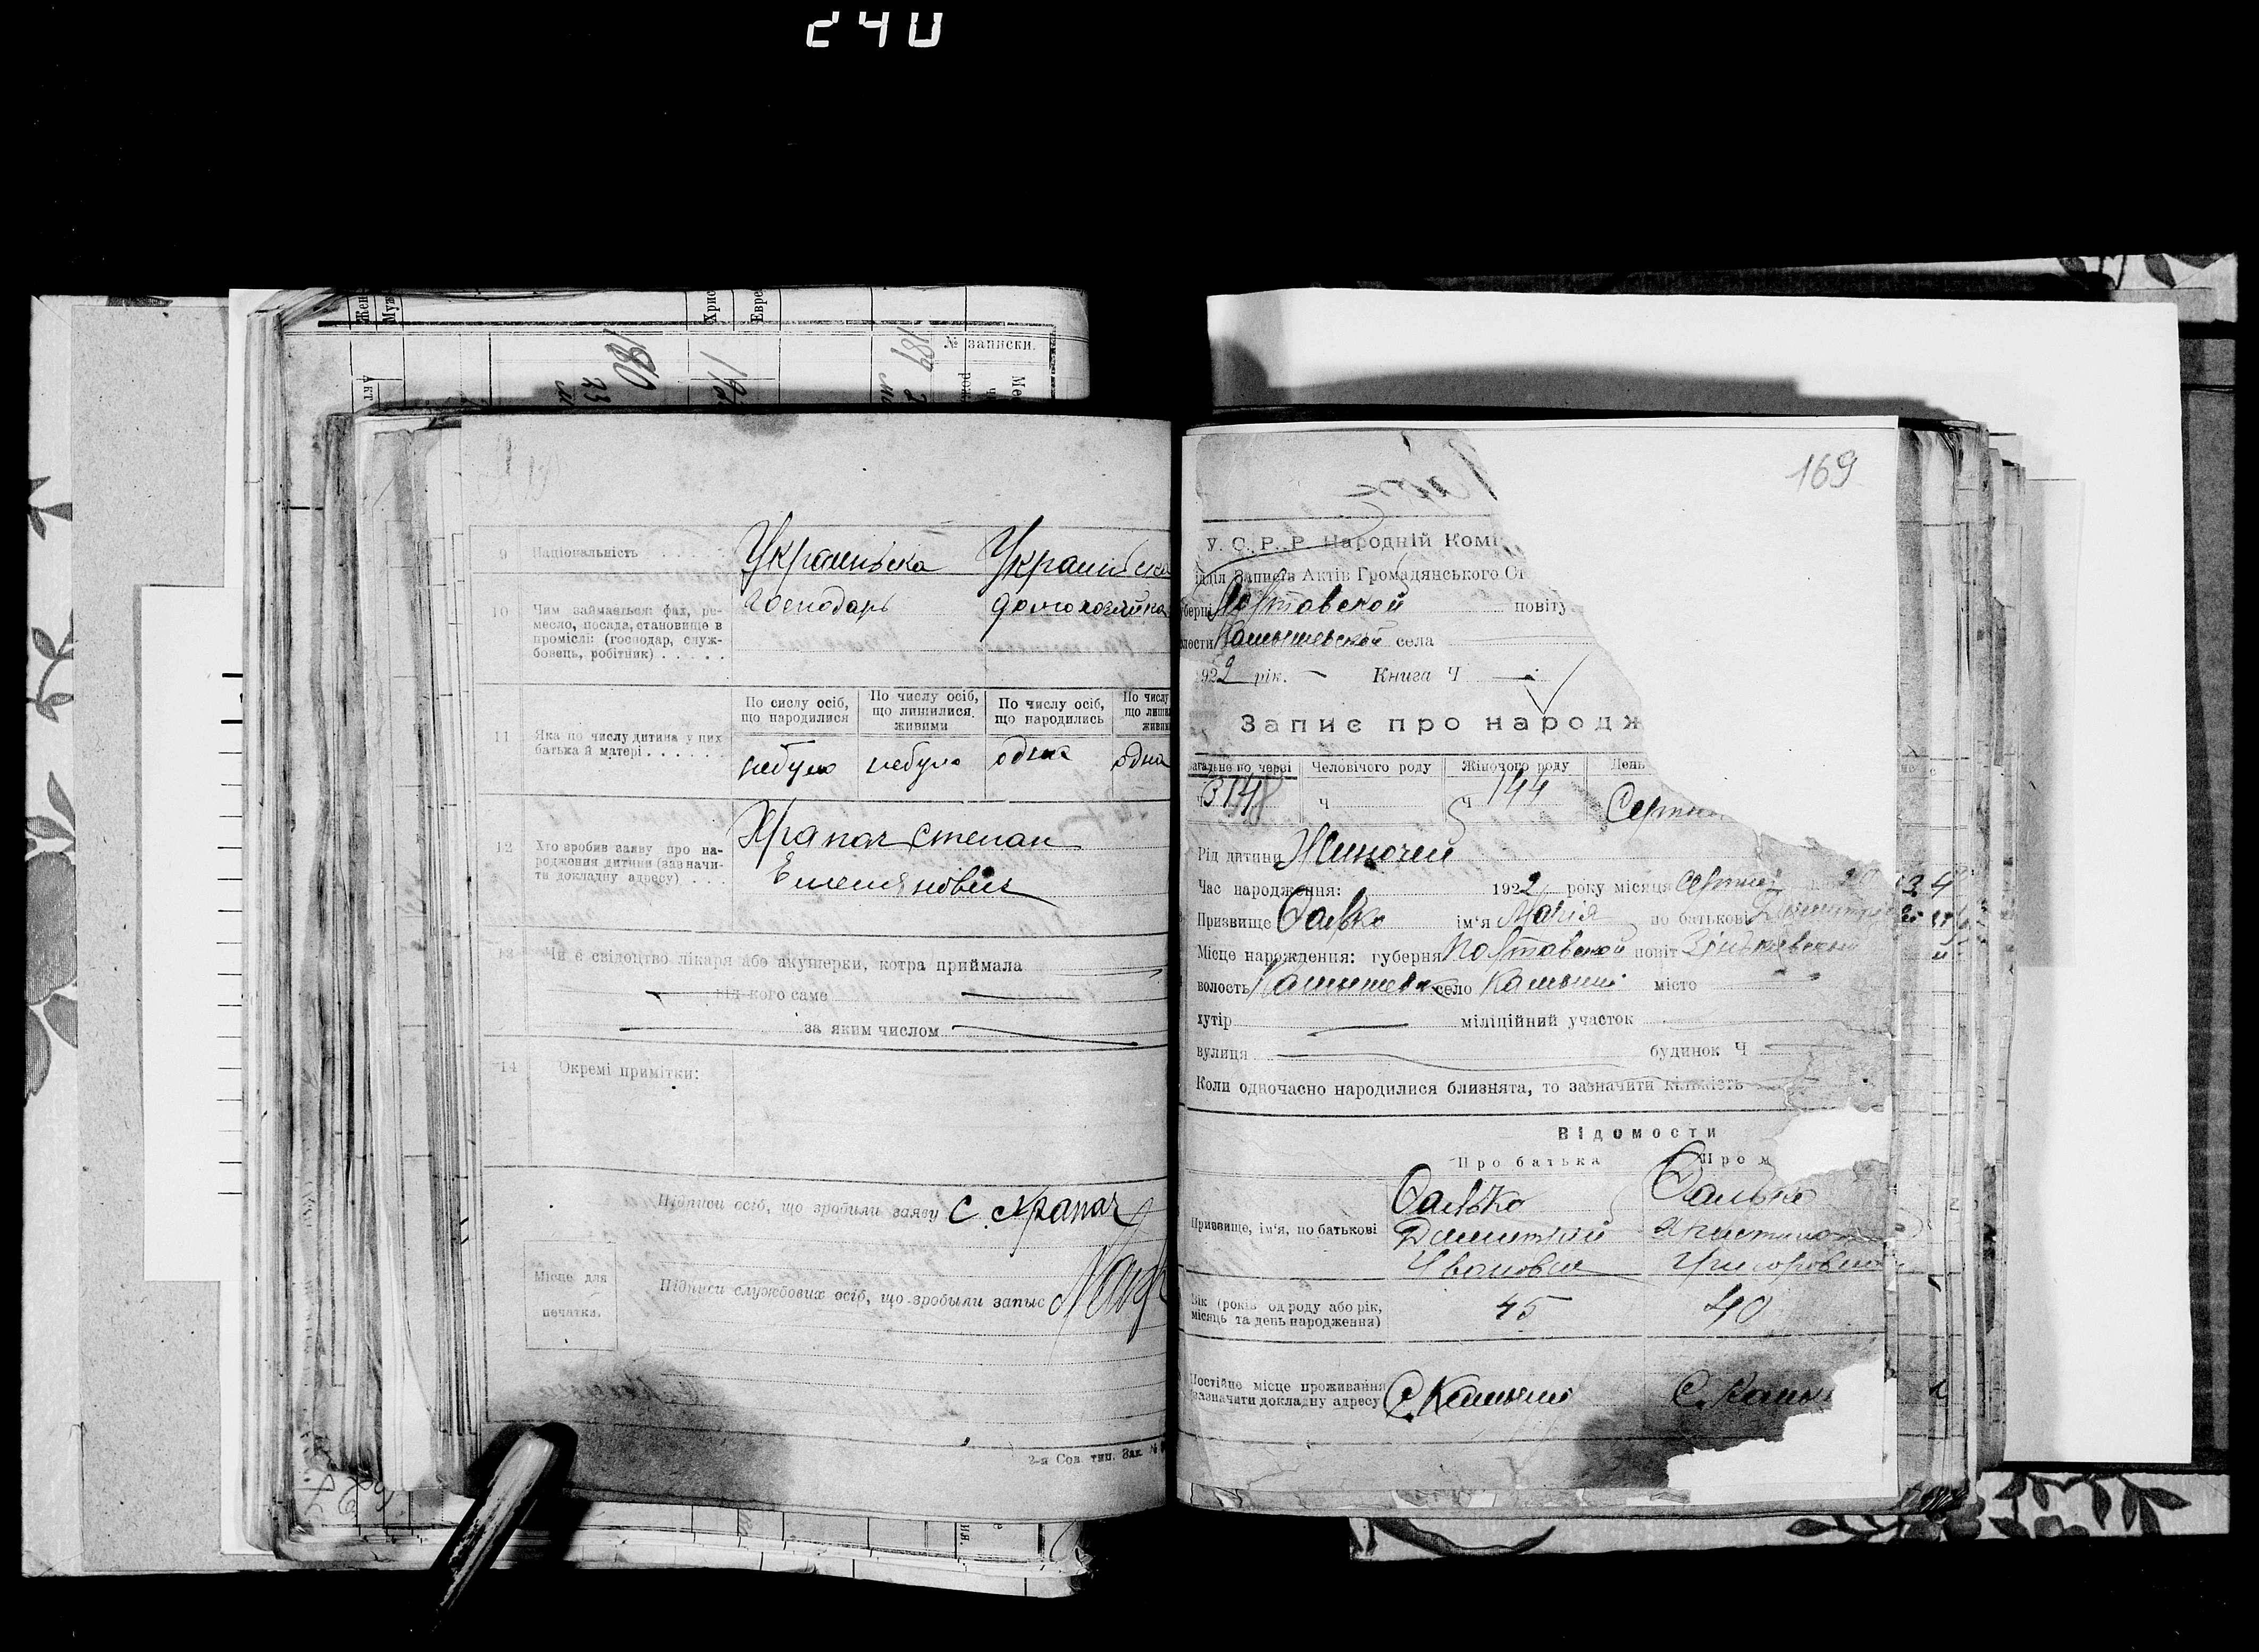 240
Жен
Муж
Хрис
Евре
№ записки.
180
189
169
9 Національність
Украинська Украинська
10 Чим займається: фах, ре-
месло, посада, становище в
промислі: (господар, служ-
бовець, робітник)
Господарь домохозяйка
11 Яка по числу дитина у цих
батька й матері
По сислу осіб,
що народилися
По числу осіб,
що лишилися
живими
По числу осіб,
що народились
По числу
що лиши
живи
небуло небуло одна одна
12 Хто зробив заяву про на-
родження дитини (зазначи-
ти докладну адресу)
Храпач Степан
Емельянович
13 Чи є свідоцтво лікаря або акушерки, котра приймала
від кого саме
за яким числом
14 Окремі примітки:
Підписи осіб, що зробили заяву С. Храпач
Місце для
печатки.
Підписи службових осіб, що зробыли запыс
2-я Сов. тип. Зак. №
У. С. Р. Р. Народній Комі
ідділ Записів Актів Громадянського Ст
уберні Полтавской повіту
лости Камышевской села
1922 рік. Книга Ч
Запис про народж
агальне по черзі Человічого роду Жіночого роду День
ч 314 ч ч 144 Серпн
Рід дитини Жиночей
Час народження: 1922 року місяця Серпня 20
Призвище Салько ім'я Марія по батькові Дмитрі
Місце народження: губерня Полтавской повіт Зіньківський
волость Камышевск село Камыши місто
хутір міліційний участок
вулиця будинок Ч
Коли одночасно народилися близнята, то зазначити кількість
Відомости
Про батька Про м
Призвище, ім'я, по батькові
Салько Салько
Дмитрий Христина
Иванович Григоровна
Вік (років од роду або рік,
місяць та день народження)
45 40
Постійне місце проживання
зазначити докладну адресу
С. Камыши С. Камы